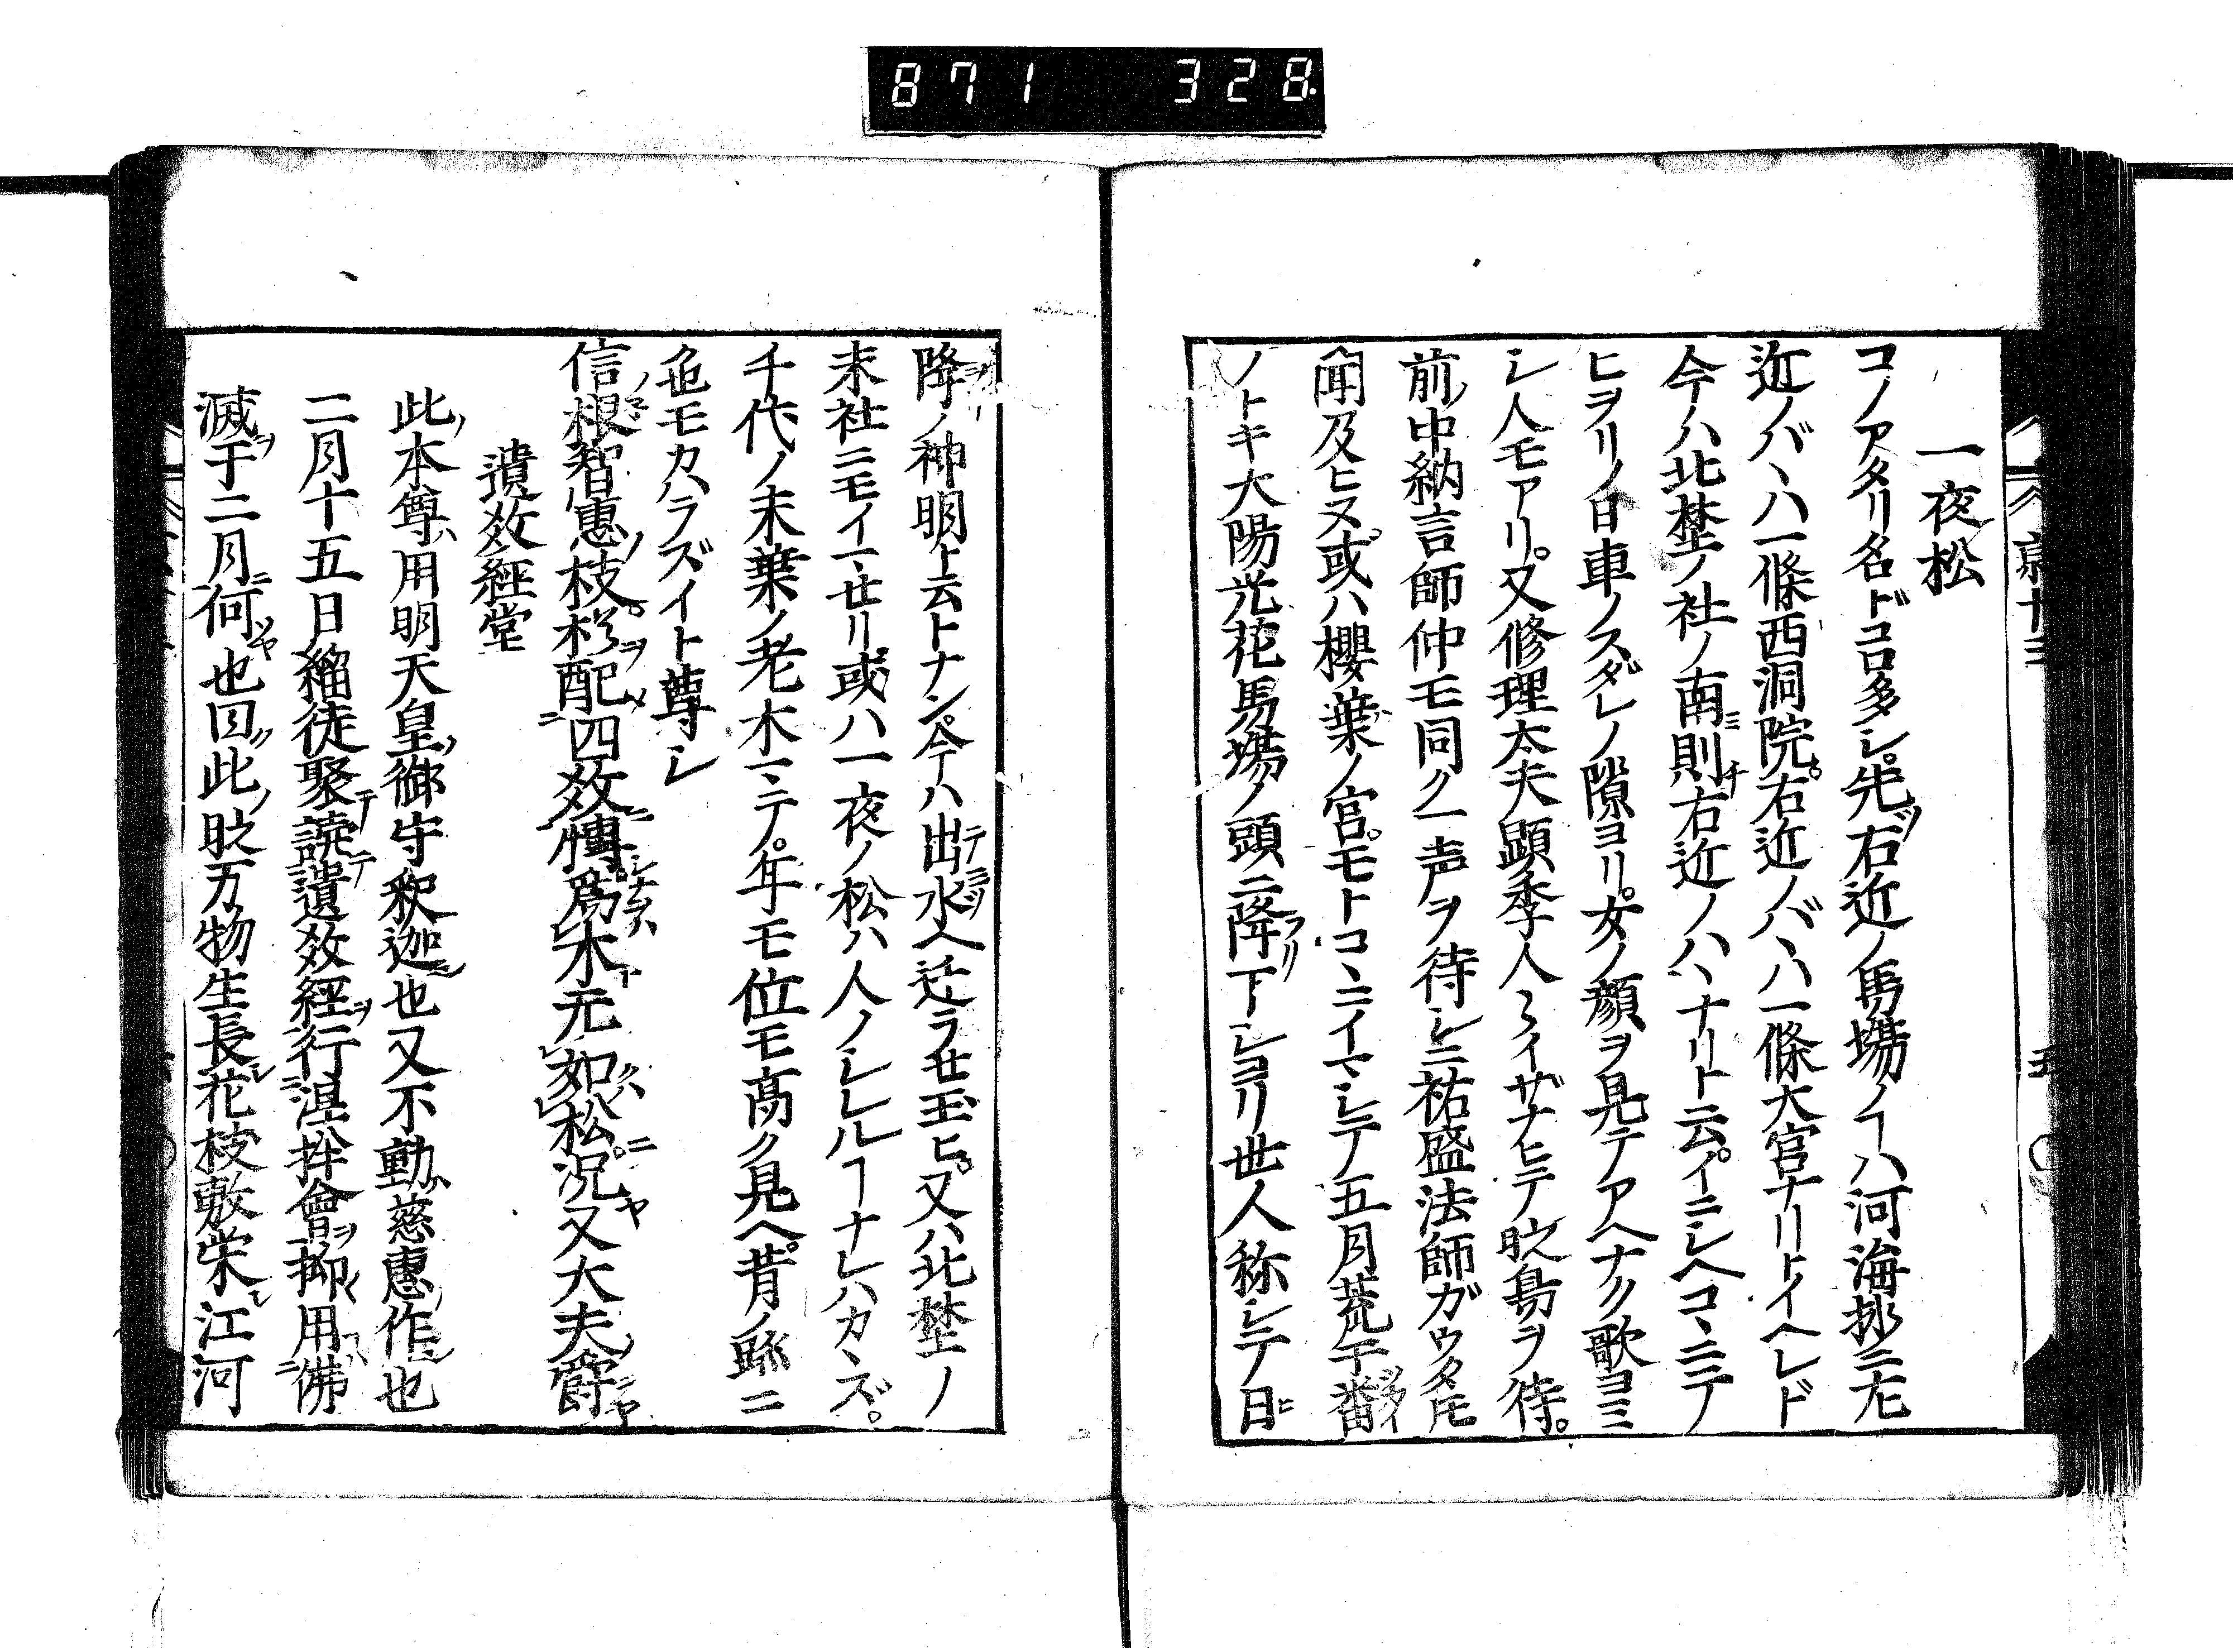 871 328
一夜松
コノアタリ名ドコロ多シ。先ヅ右近ノ馬場ノヿハ河海抄ニ左
近ノバヽハ一條西洞院。右近ノバヽハ一條大宮ナリトイヘレド
今ハ北埜ノ社ノ南ニ則チ右近ノハヽナリト云。イニシヘコヽニテ
ヒヲリノ日車ノスダレノ隙ヨリ。女ノ顔ヲ見テアヘナク歌ヨミ
シ人モアリ。又修理太夫顕季人々イザナヒテ時鳥ヲ待。
前ノ中納言師仲モ同ク一声ヲ待シニ祐盛法師ガウタ𪜈
聞及ヒヌ。或ハ櫻葉ノ宮。モトコヽニイマシテ五月荒午畨
ノトキ大陽光花馬場ノ頭ニ降フリ下シヨリ世人称シテ日ヒ
降ノ神明ト云トナン。今ハ出テ水ミヅヘ迁ラせ玉ヒ。又ハ北埜ノ
末社ニモイマせリ。或ハ一夜ノ松ハ人ノシレルヿナレハカヽズ。
千代ノ末葉ノ老木マテ。年モ位モ髙ク見ヘ。昔ノ跡ニ
色モカハラズイト尊シ
信根智惠ノ枝杉ヲ配四教ニ慱爲木ト元如松ニ況ヤ又大夫ノ爵ニヤ
遺教経堂
此ノ本尊ハ用明天皇ノ御守釈迦也又不動ハ慈惠ノ作也
二月十五日緇徒聚テ読テ遺教経ヲ行ニ涅槃會ヲ抑用ハ佛
滅ヲ于二月ニ何ソヤ也曰此ノ時万物生長シ花枝敷栄シ江河